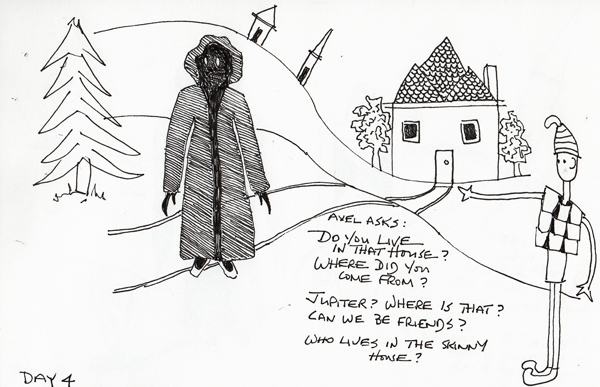 AXEL ASKS:
DO YOU LIVE
IN THAT HOUSE?
WHERE DID YOU
COME FROM?
JUPITER? WHERE IS THAT?
CAN WE BE FRIENDS?
WHO LIVES IN THE SKINNY
HOUSE?
DAY 4